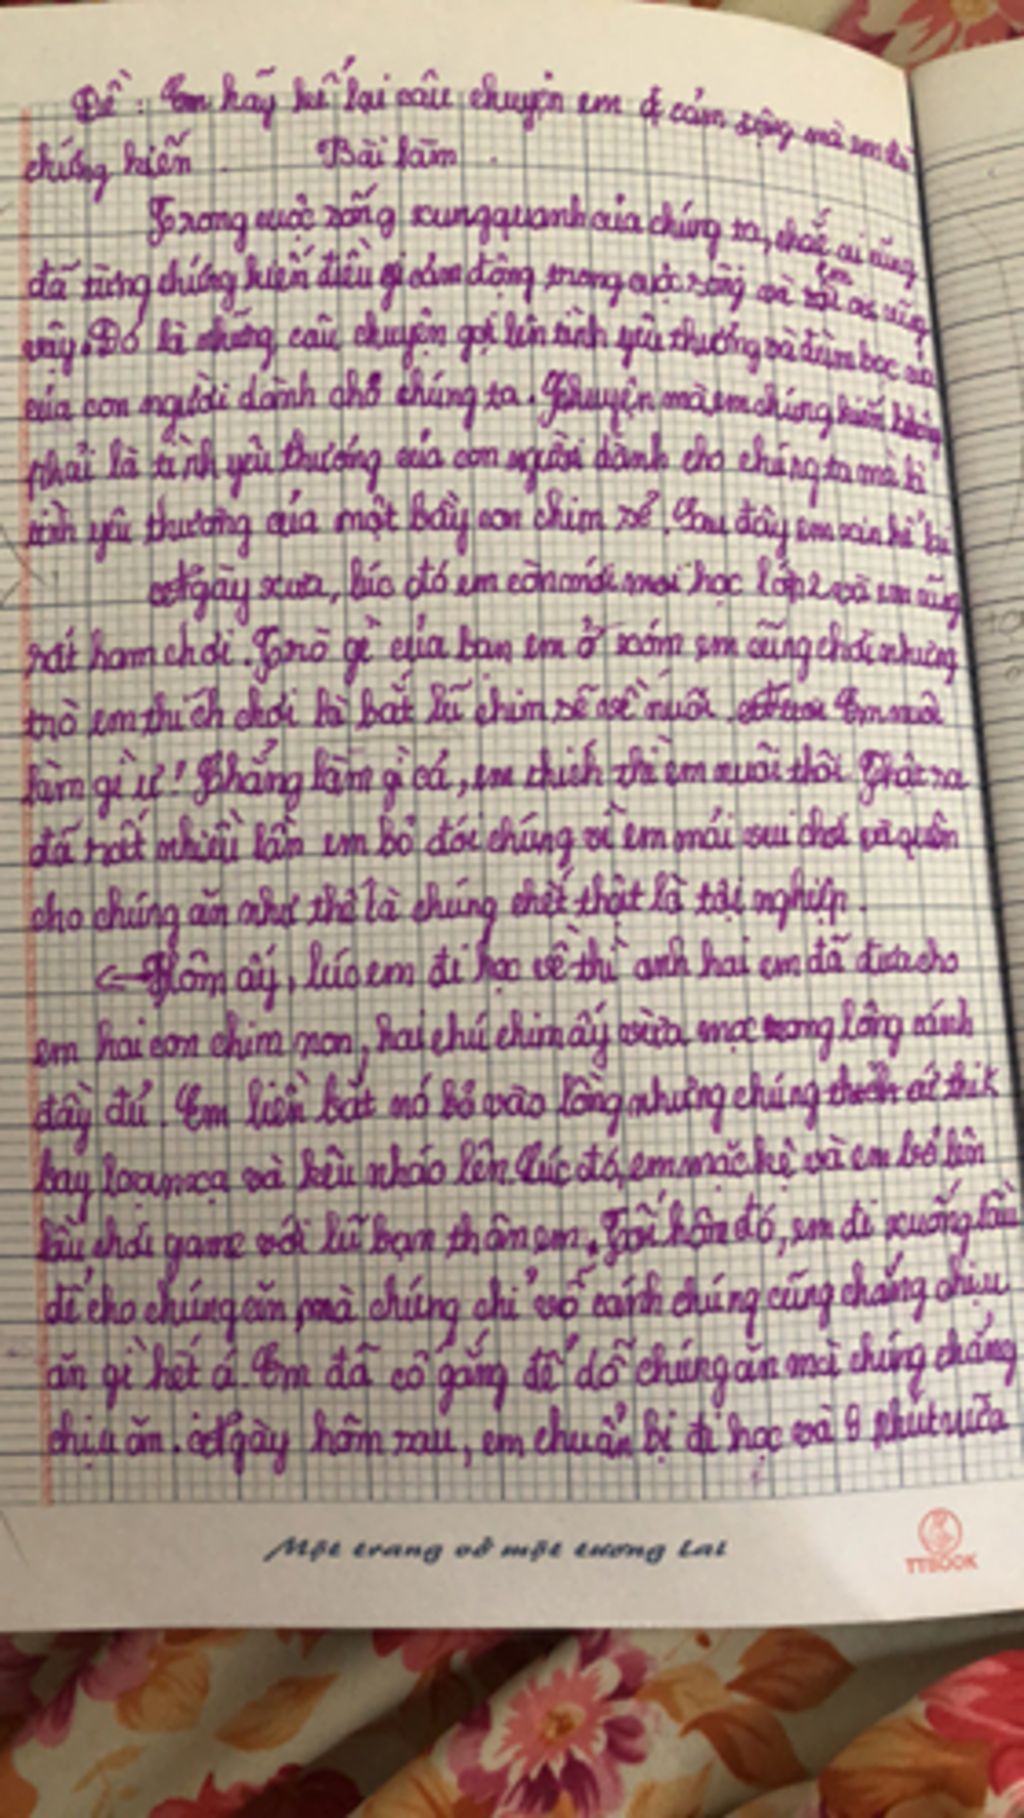 Đề: Em hãy kể lại câu chuyện em cảm động mà em đã
chứng kiến. Bài làm.
Trong cuộc sống xung quanh của chúng ta, chắc ai cũng
đã từng chứng kiến điều gì cảm động trong cuộc sống và em cũng
vậy. Đó là những câu chuyện gợi lên tình yêu thương và đùm bọc
của con người dành cho chúng ta. Chuyện mà em chứng kiến không
phải là tình yêu thương của con người dành cho chúng ta mà là
tình yêu thương của một bầy con chim sẻ. Sau đây em xin kể lại
Ngày xưa, lúc đó em còn mới học lớp 2 và em cũng
rất ham chơi. Trò gì của bạn em ở xóm em cũng chơi nhưng
trò em thích chơi là bắt lũ chim sẽ về nuôi. Em nuôi
làm gì ư! Chẳng làm gì cả, em thích thì em nuôi thôi. Thật ra
đã rất nhiều lần em bỏ đói chúng vì em mải vui chơi và quên
cho chúng ăn như thế là chúng chết thật là tội nghiệp.
Hôm ấy, lúc em đi học về thì anh hai em đã đưa cho
em hai con chim non, hai chú chim ấy vừa mọc trong lông cánh
đầy đủ. Em liền bắt nó bỏ vào lồng nhưng chúng cứ thik
bay loạn xạ và kêu nháo lên. Lúc đó, em mặc kệ và em bỏ lên
lầu chơi game với lũ bạn thân em. Tối hôm đó, em đi xuống lầu
để cho chúng ăn, mà chúng chỉ vỗ cánh chúng cũng chẳng chịu
ăn gì hết á. Em đã cố gắng để dỗ chúng ăn mà chúng chẳng
chịu ăn. Ngày hôm sau, em chuẩn bị đi học và 9 phút nữa
Một trang vở một tương lai
TTBOOK